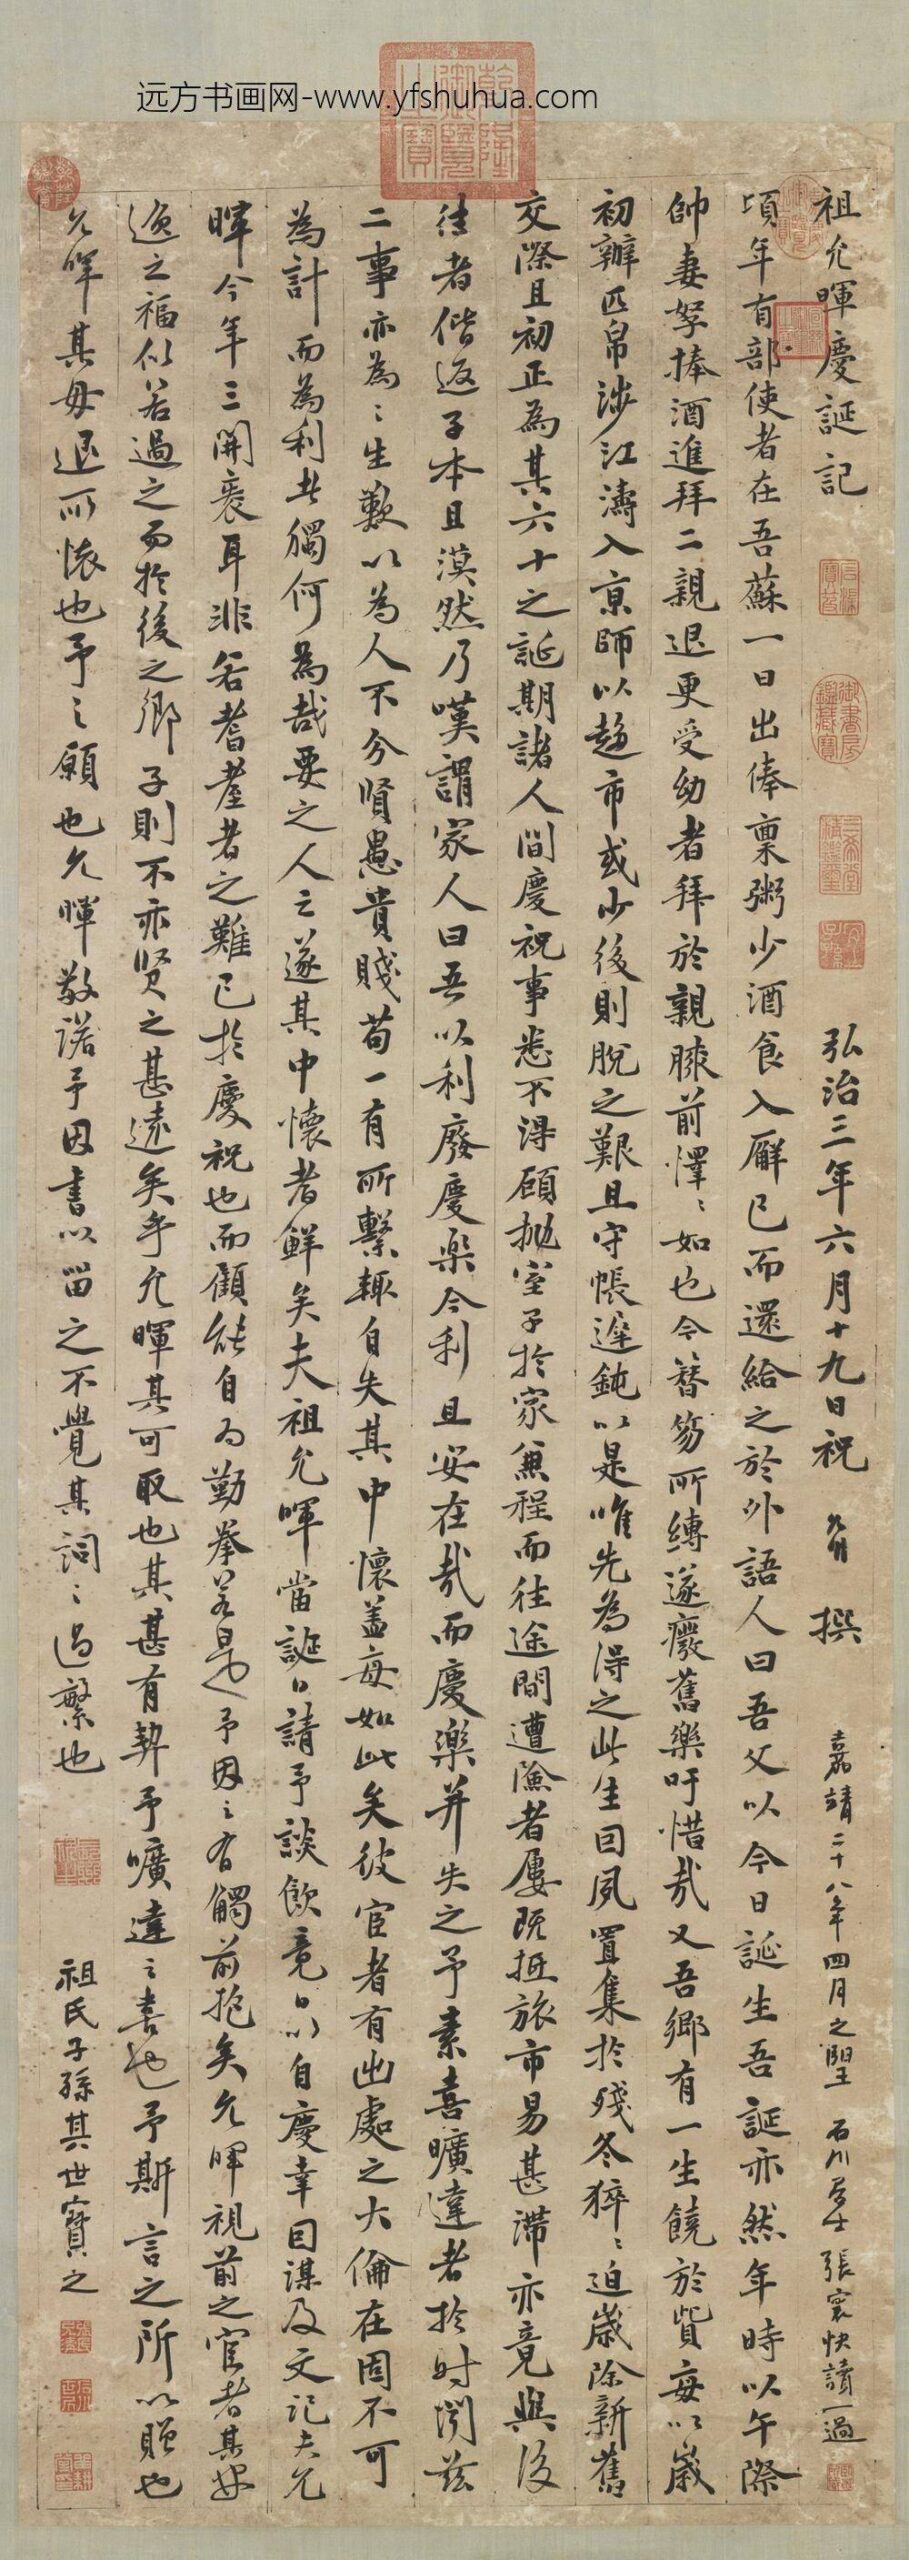 远方书画网-www.yfshuhua.com
乾隆御覽之寶
祖允暉慶誕記
弘治三年六月十九日祝 撰
嘉靖二十八年四月之望 石川居士張寰快讀一過
頃年有部使者在吾蘇一日出俸稟粥少酒食入廨已而還給之於外語人曰吾父以今日誕生吾誕亦然年時以午際
帥妻孥捧酒進拜二親退更受幼者拜於親膝前懌〻如也今簪笏所縛遂癈舊樂吁惜哉又吾鄉有一生饒於貲每以歲
初辦匹帛涉江濤入京師以趨市或少後則脫之艱且守帳遲鈍以是唯先為得之此生因夙置集於殘冬猝〻迫歲除新舊
交際且初正為其六十之誕期諸人間慶祝事悉不得顧拋室子於家兼程而往途間遭險者屢既抵旅市易甚滯亦竟與後
往者偕返子本且漠然乃嘆謂家人曰吾以利廢慶樂今利且安在哉而慶樂并失之予素喜曠達者於時閔茲
二事亦為〻生歎以為人不分賢愚貴賤苟一有所繫輒自失其中懷蓋每如此矣彼宦者有出處之大倫在固不可
為計而為利者獨何為哉要之人之遂其中懷者鮮矣夫祖允暉當誕日請予談飲竟日以自慶幸因謀及文記夫允
暉今年三開袠耳非若耆耋者之難已於慶祝也而顧能自為勤拳若是予因之有觸前抱矣允暉視前之宦者其安
逸之福似若過之而於後之鄉子則不亦賢之甚遠矣乎允暉其可取也其甚有契予曠達之喜也予斯言之所以贈也
允暉其毋退所懷也予之願也允暉敬諾予因書以留之不覺其詞〻過繁也
祖氏子孫其世寶之